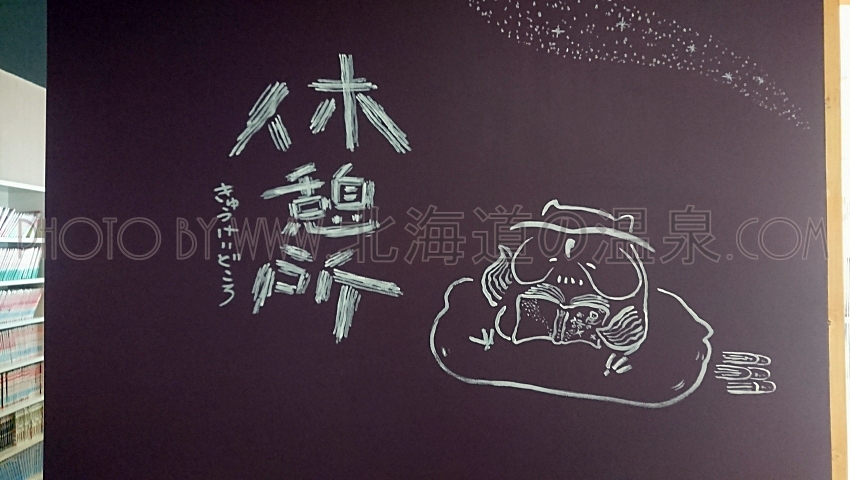 休憩所
きゅうけいどころ
PHOTO BY WWW.北海道の温泉.COM